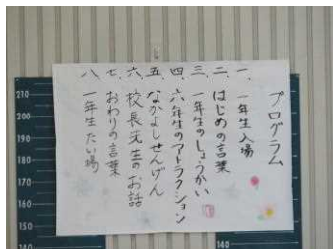 プログラム
一、一年生入場
二、はじめの言葉
三、一年生のしょうかい
四、六年生のアトラクション
五、なかよしせんげん
六、校長先生のお話
七、おわりの言葉
八、一年生たい場
210
200
190
180
170
160
150
140
130
140